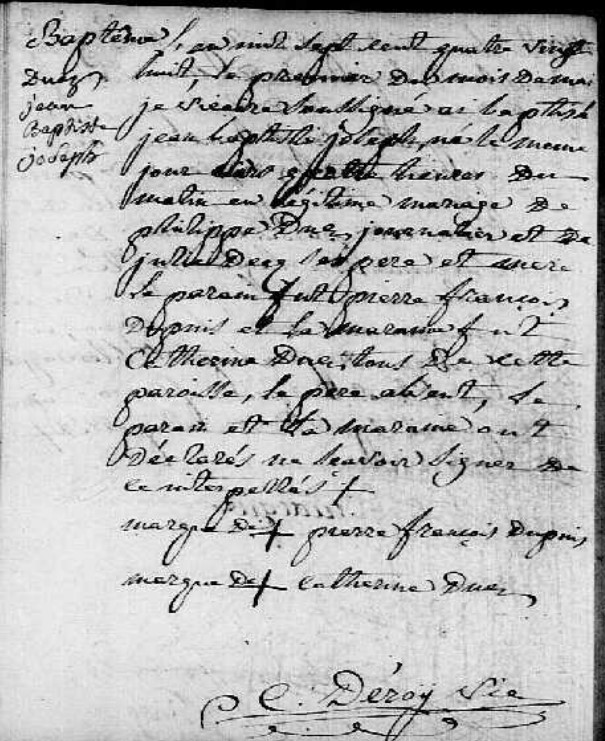 Baptême l'an mil sept cent quatre vingt
Duez
jean
Baptiste
joseph
huit, le premier du mois de mai
je vicaire soussigné ai baptisé
jean baptiste joseph, né le meme
jour vers quatre heures du
matin en légitime mariage de
philippe Duez, journalier et de
julie Decq ses pere et mere
le parain fut pierre françois
Dupuis et la maraine fut
Catherine Duez, tous de cette
paroisse, le pere absent, le
parain et la maraine ont
déclarés ne scavoir signer de
ce interpellés +
marque de + pierre françois Dupuis
marque de + Catherine Duez
C. Déroy Vic